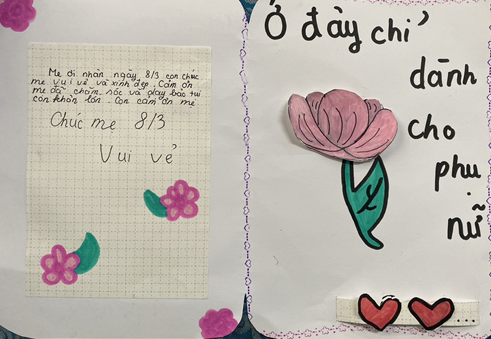 Mẹ ơi nhân ngày 8/3 con chúc
mẹ vui vẻ và xinh đẹp. Cảm ơn
mẹ đã chăm sóc và dạy bảo tụi
con khôn lớn. Con cảm ơn mẹ
Chúc mẹ 8/3
Vui vẻ
Ở đây chỉ
dành
cho
phụ
nữ